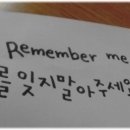 Remember me
를 잊지말아주세요